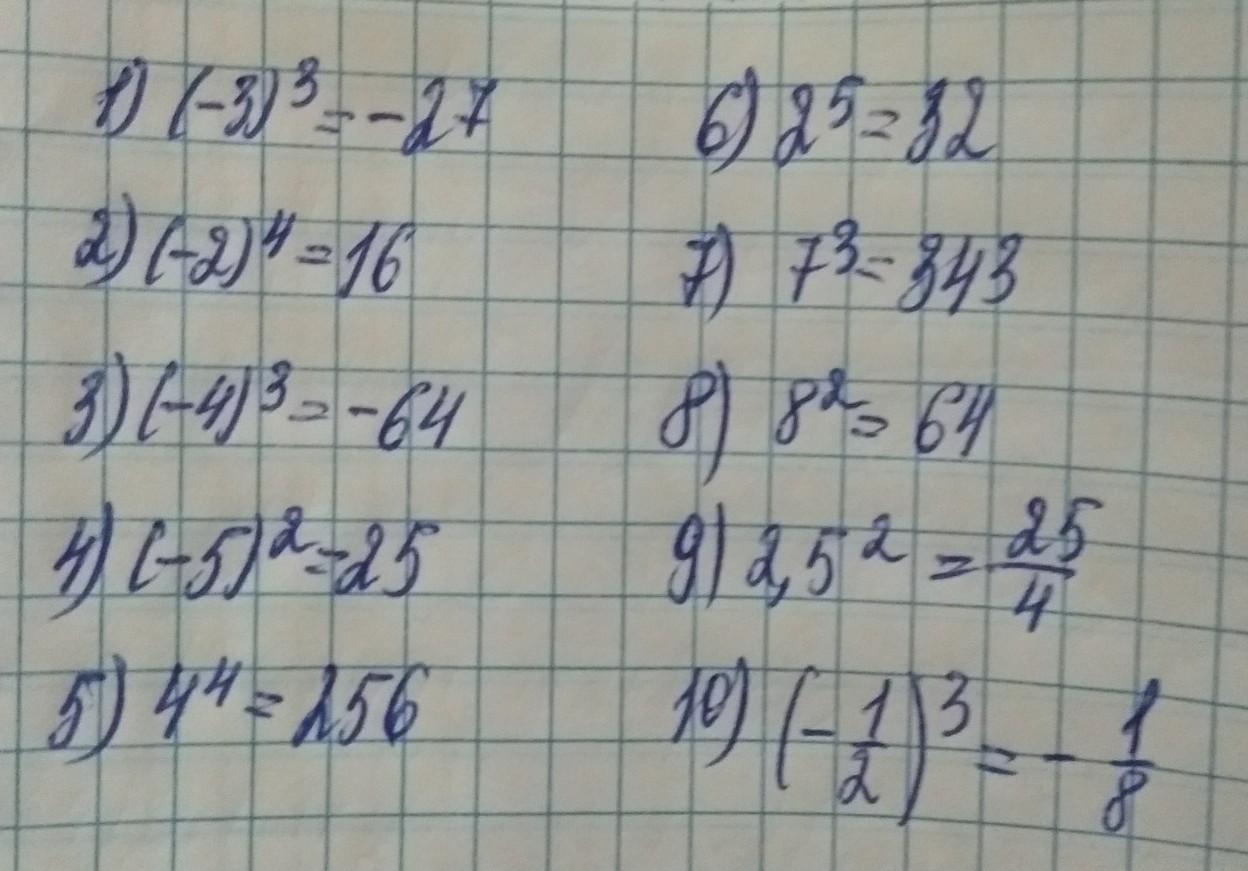 1) (-3)³ = -27
2) (-2)⁴ = 16
3) (-4)³ = -64
4) (-5)² = 25
5) 4⁴ = 256
6) 2⁵ = 32
7) 7³ = 343
8) 8² = 64
9) 2,5² = 25/4
10) (-1/2)³ = -1/8